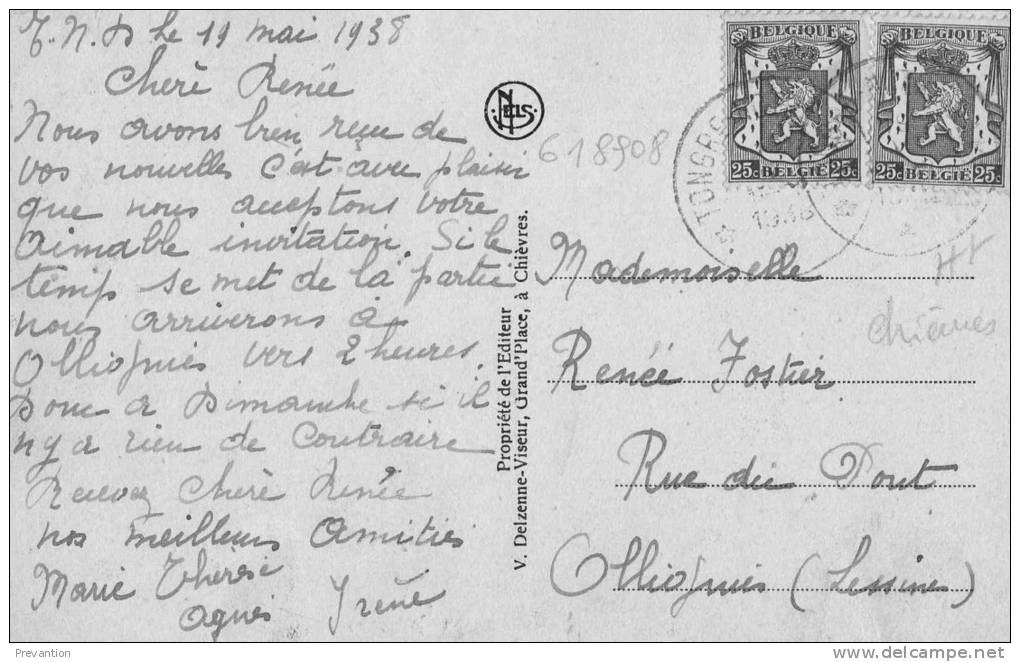 T.N.D le 19 mai 1938
Cherè Renée
Nous avons bien recu de
vos nouvelles C'est avec plaisir
que nous acceptons votre
Aimable invitation. Si le
temps se met de la partie
nous arriverons à
Ollignies vers 2 heures
Donc a Dimanche si il
n'y a rien de Contraire
Recevez Cherè Renée
nos meilleurs Amitiés
Marie Thérèse
Agnès Irène
NELS
618908
Propriété de l'Editeur
V. Delzenne-Viseur, Grand'Place, à Chièvres.
BELGIQUE
25c BELGIE 25c
BELGIQUE
25c BELGIE 25c
1938
Mademoiselle
Chièvres
Renéé Fostier
Rue du Pont
Ollignies (Lessines)
Prevantion
www.delcampe.net